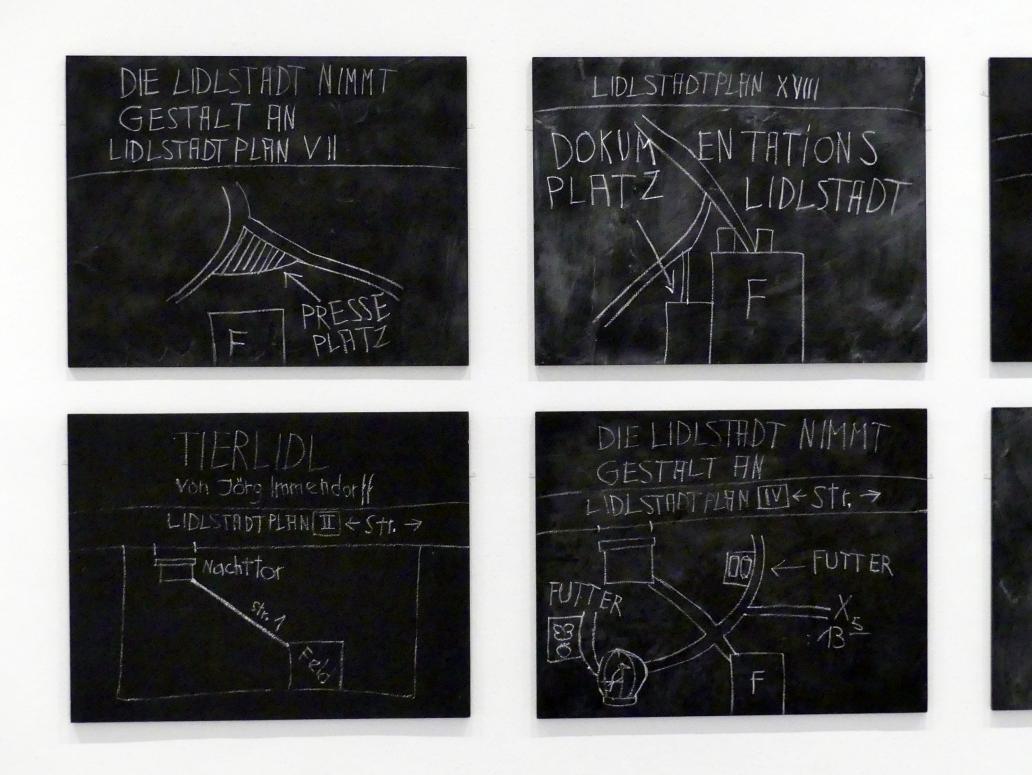 DIE LIDLSTADT NIMMT
GESTALT AN
LIDLSTADTPLAN VII
PRESSE
PLATZ
F
LIDLSTADTPLAN XVIII
DOKUMENTATIONS
PLATZ LIDLSTADT
F
TIERLIDL
von Jörg Immendorff
LIDLSTADTPLAN II ← Str. →
Nachttor
Str. 1
DIE LIDLSTADT NIMMT
GESTALT AN
LIDLSTADTPLAN IV ← Str. →
FUTTER
FUTTER
X
5
13
F